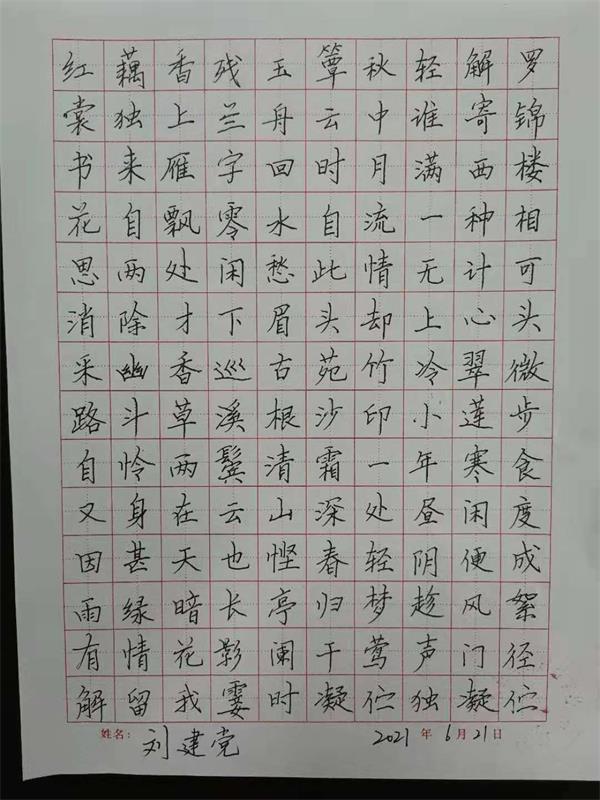 红藕香残玉簟秋轻解罗
裳独上兰舟云中谁寄锦
书来雁字回时月满西楼
花自飘零水自流一种相
思两处闲愁此情无计可
消除才下眉头却上心头
采幽香巡古苑竹冷翠微
路斗草溪根沙印小莲步
自怜两鬓清霜一年寒食
又身在云山深处昼闲度
因甚天也悭春轻阴便成
雨绿暗长亭归梦趁风絮
有情花影阑干莺声门径
解留我霎时凝伫独凝伫
姓名：刘建党 2021年6月21日